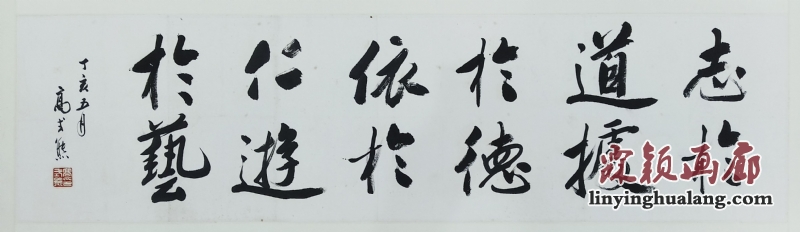 志於
道據
於德
依於
仁遊
於藝
丁亥五月
高式熊
霖颖画廊
linyinghualang.com